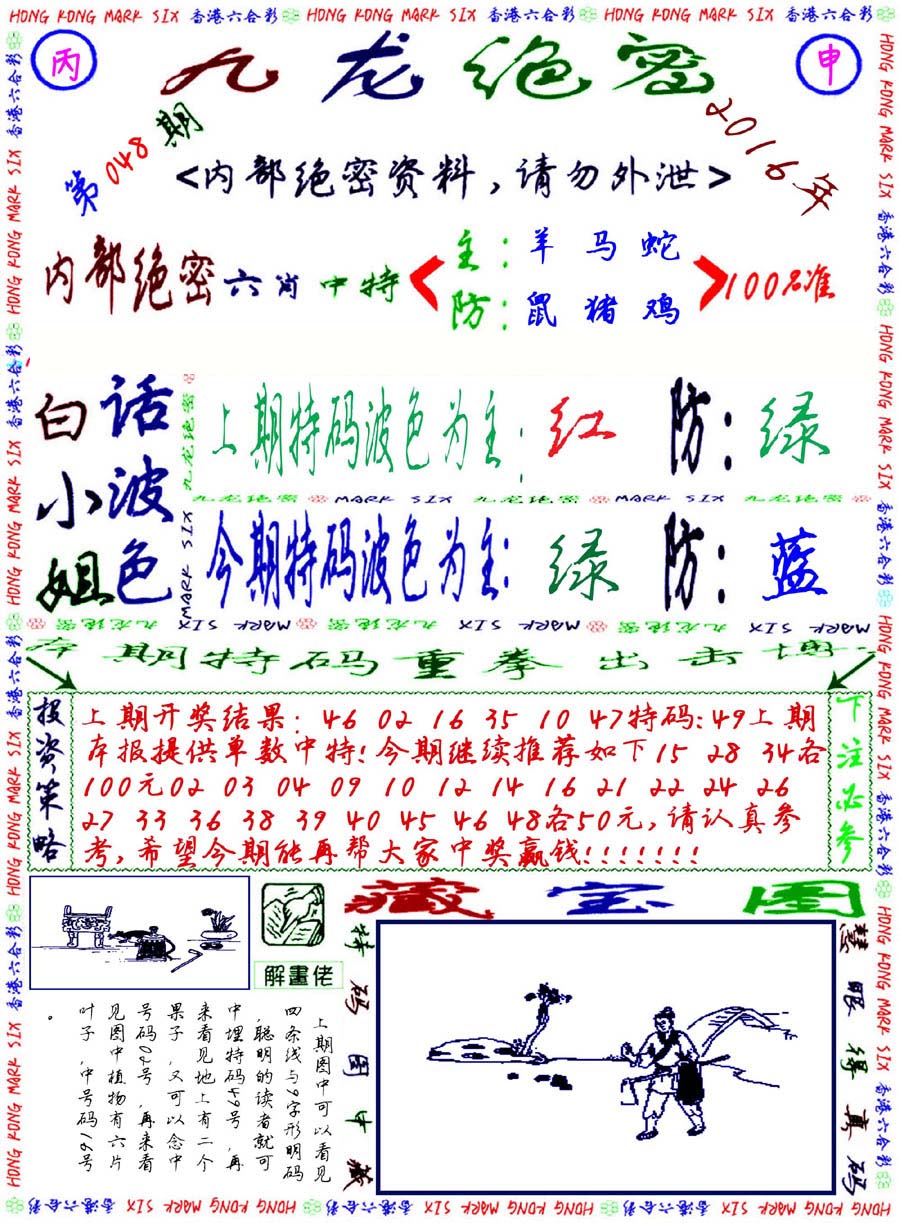 HONG KONG MARK SIX 香港六合彩 HONG KONG MARK SIX 香港六合彩 HONG KONG MARK SIX 香港六合彩
丙
九龙绝密
申
第048期
2016年
<内部绝密资料,请勿外泄>
内部绝密六肖中特
主:羊 马 蛇
防:鼠 猪 鸡
100%准
白话
小波
姐色
上期特码波色为主:红 防:绿
九龙绝密 MARK SIX 九龙绝密 MARK SIX 九龙绝密
今期特码波色为主:绿 防:蓝
九龙绝密 MARK SIX 九龙绝密 MARK SIX 九龙绝密 MARK SIX
期特码重拳出击
投资策略
上期开奖结果: 46 02 16 35 10 47特码:49上期
本报提供单数中特!今期继续推荐如下15 28 34各
100元02 03 04 09 10 12 14 16 21 22 24 26
27 33 36 38 39 40 45 46 48各50元,请认真参
考,希望今期能再帮大家中奖赢钱!!!!!!!
下注必参
藏宝图
解畫佬
特码图中藏
慧眼得真码
上期图中可以看见
四条线与9字形明码
,聪明的读者就可
中埋特码49号,再
来看见地上有二个
果子,又可以念中
号码02号,再来看
见图中植物有六片
叶子,中号码16号
。
HONG KONG MARK SIX 香港六合彩 HONG KONG MARK SIX 香港六合彩 HONG KONG MARK SIX 香港六合彩